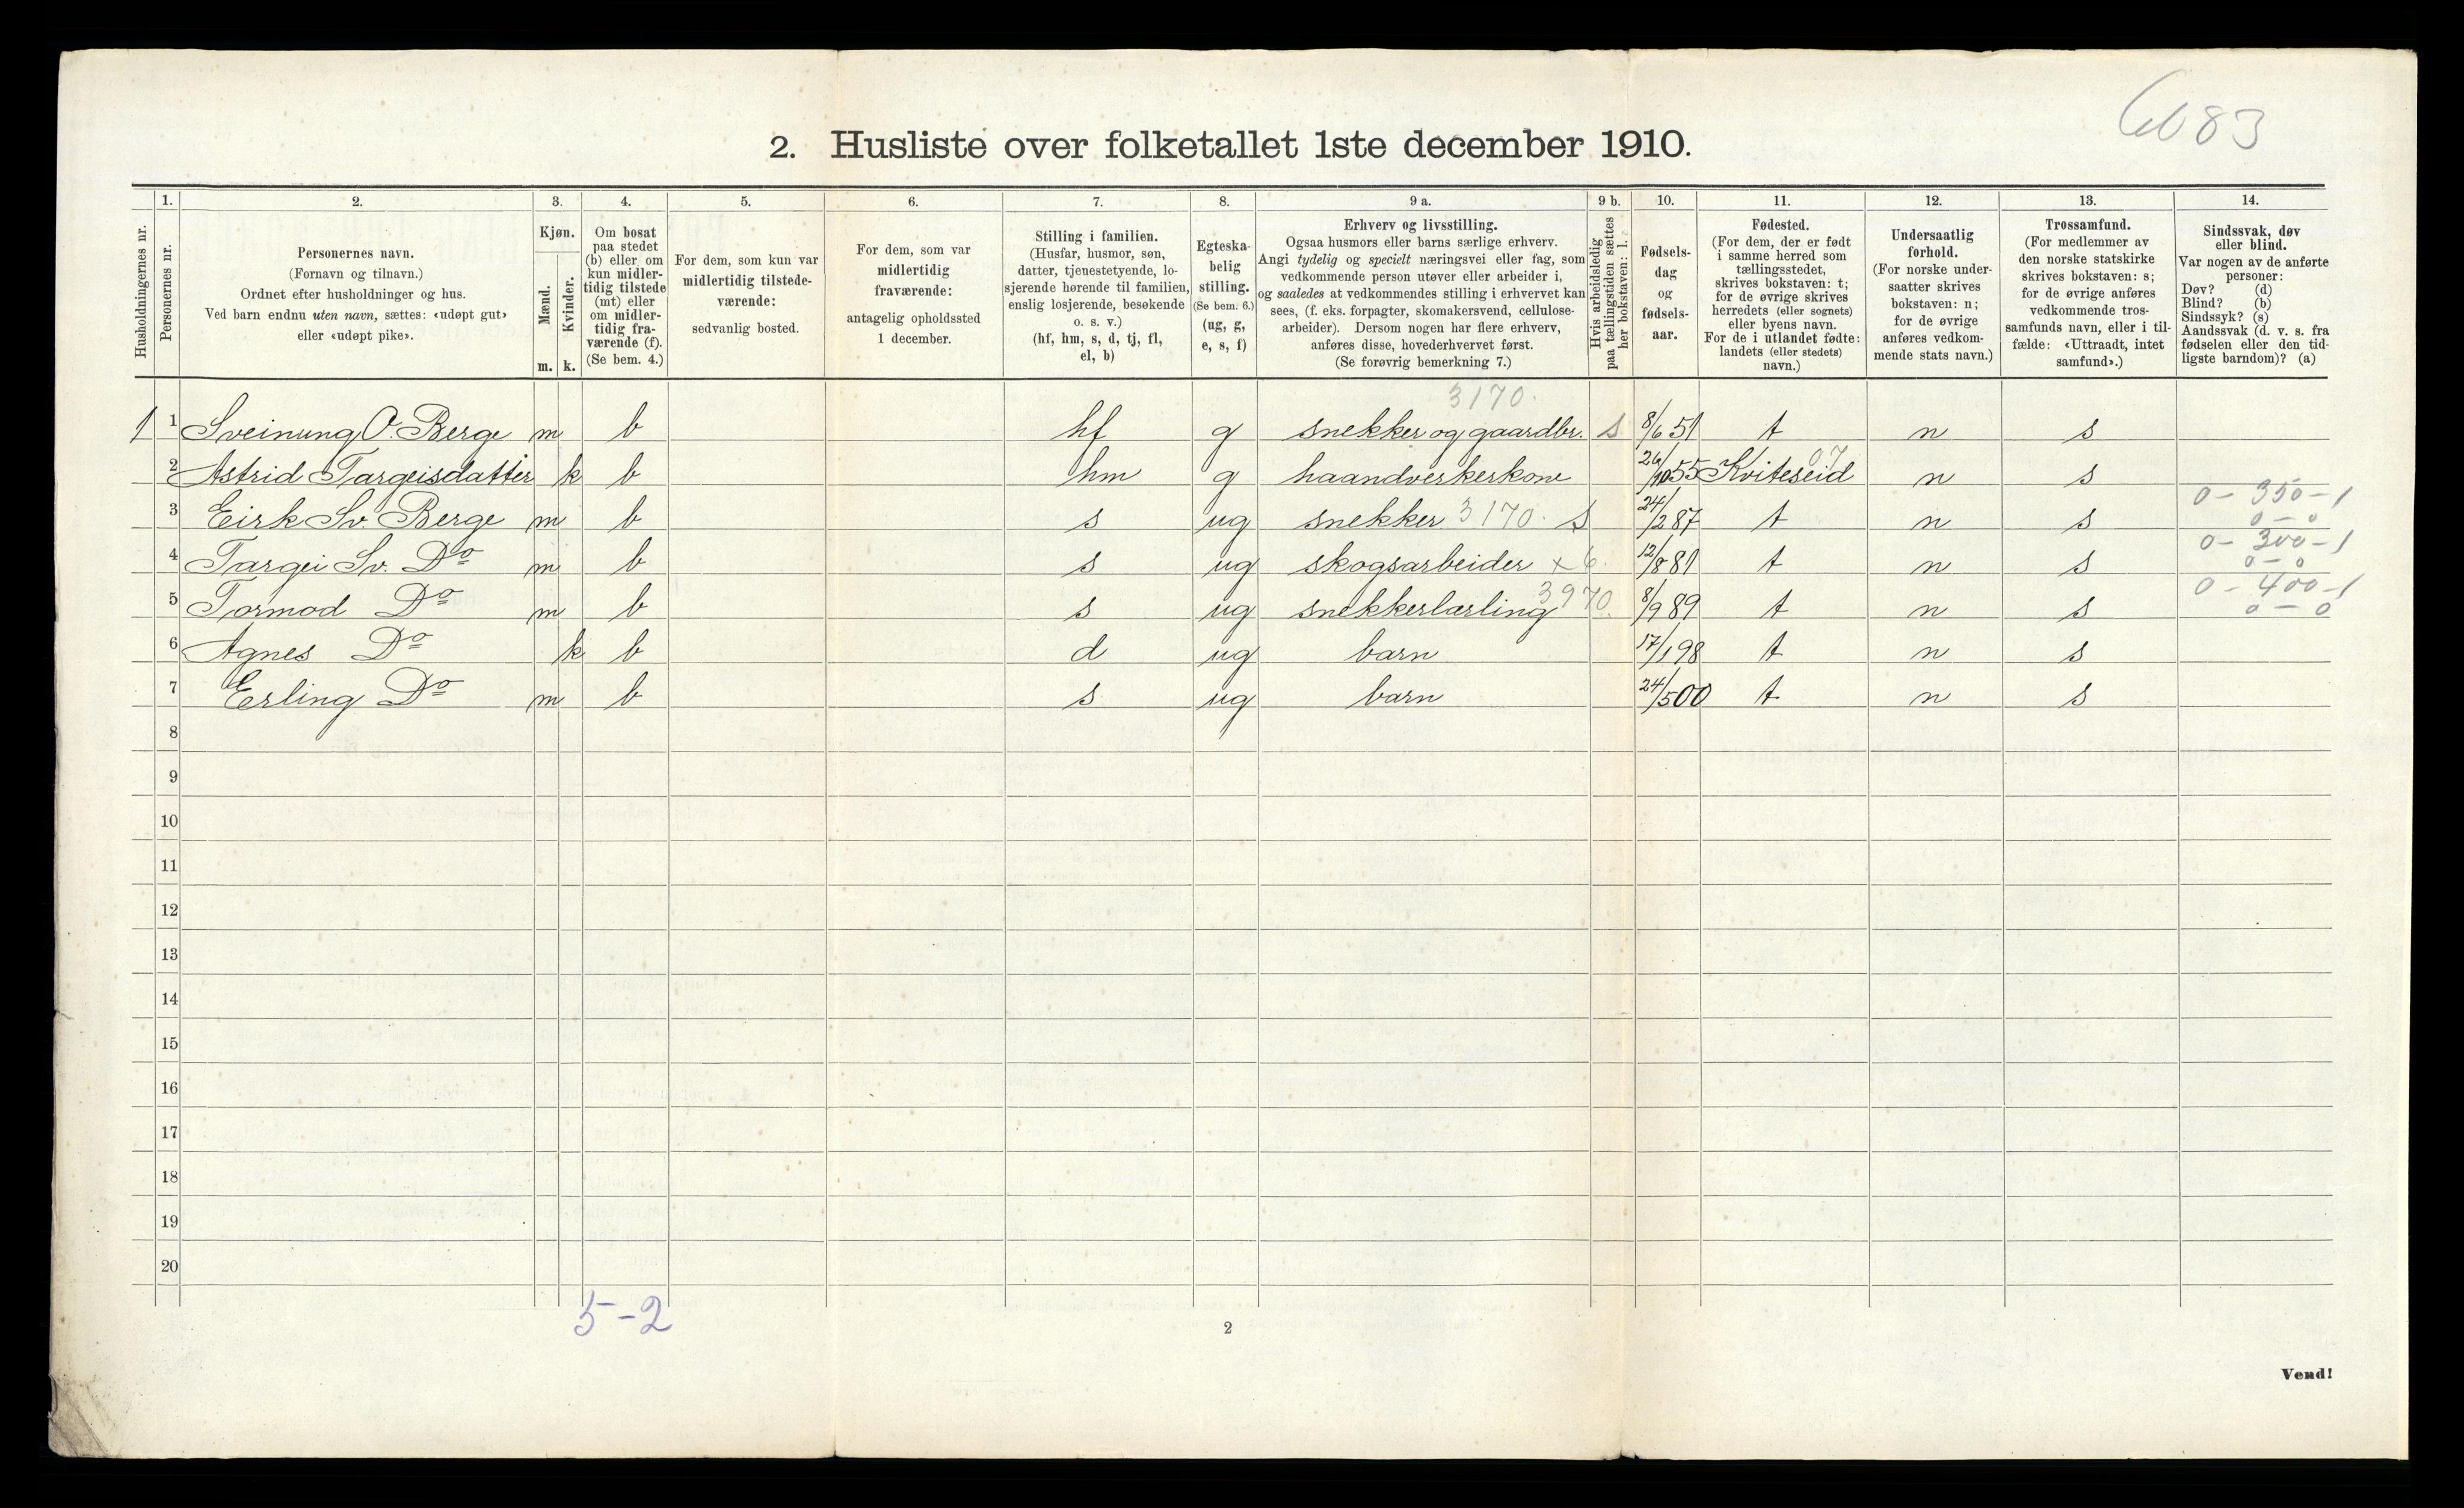 6083
2. Husliste over folketallet 1ste december 1910.
Husholdningernes nr.
1.
Personernes nr.
2.
Personernes navn.
(Fornavn og tilnavn.)
Ordnet efter husholdninger og hus.
Ved barn endnu uten navn, sættes: «udøpt gut»
eller «udøpt pike».
3.
Kjøn.
Mænd.
Kvinder.
m. k.
4.
Om bosat
paa stedet
(b) eller om
kun midler-
tidig tilstede
(mt) eller
om midler-
tidig fra-
værende (f).
(Se bem. 4.)
5.
For dem, som kun var
midlertidig tilstede-
værende:
sedvanlig bosted.
6.
For dem, som var
midlertidig
fraværende:
antagelig opholdssted
1 december.
7.
Stilling i familien.
(Husfar, husmor, søn,
datter, tjenestetyende, lo-
sjerende hørende til familien,
enslig losjerende, besøkende
o. s. v.)
(hf, hm, s, d, tj, fl,
el, b)
8.
Egteska-
belig
stilling.
(Se bem. 6.)
(ug, g,
e, s, f)
9 a.
Erhverv og livsstilling.
Ogsaa husmors eller barns særlige erhverv.
Angi tydelig og specielt næringsvei eller fag, som
vedkommende person utøver eller arbeider i,
og saaledes at vedkommendes stilling i erhvervet kan
sees, (f. eks. forpagter, skomakersvend, cellulose-
arbeider). Dersom nogen har flere erhverv,
anføres disse, hovederhvervet først.
(Se forøvrig bemerkning 7.)
9 b.
Hvis arbeidsledig
paa tællingstiden sættes
her bokstaven: l.
10.
Fødsels-
dag
og
fødsels-
aar.
11.
Fødested.
(For dem, der er født
i samme herred som
tællingsstedet,
skrives bokstaven: t;
for de øvrige skrives
herredets (eller sognets)
eller byens navn.
For de i utlandet fødte:
landets (eller stedets)
navn.)
12.
Undersaatlig
forhold.
(For norske under-
saatter skrives
bokstaven: n;
for de øvrige
anføres vedkom-
mende stats navn.)
13.
Trossamfund.
(For medlemmer av
den norske statskirke
skrives bokstaven: s;
for de øvrige anføres
vedkommende tros-
samfunds navn, eller i til-
fælde: «Uttraadt, intet
samfund».)
14.
Sindssvak, døv
eller blind.
Var nogen av de anførte
personer:
Døv? (d)
Blind? (b)
Sindssyk? (s)
Aandssvak (d. v. s. fra
fødselen eller den tid-
ligste barndom)? (a)
3170.
1 1 Sveinung O. Berge m b hf g snekker og gaardbr. s 8/6 51 t n s
07
2 Astrid Targeisdatter k b hm g haandverkerkone 26/10 55 Kviteseid n s
0 - 350 - 1
3 Eirk Sv. Berge m b s ug snekker 3170. s 24/2 87 t n s 0 - 0
0 - 300 - 1
4 Targei Sv. Do m b s ug skogsarbeider x 6. 12/8 81 t n s 0 - 0
0 - 400 - 1
5 Tormod Do m b s ug snekkerlærling 3970. 8/9 89 t n s 0 - 0
6 Agnes Do k b d ug barn 17/1 98 t n s
7 Erling Do m b s ug barn 24/5 00 t n s
8
9
10
11
12
13
14
15
16
17
18
19
20
5-2
2
Vend!